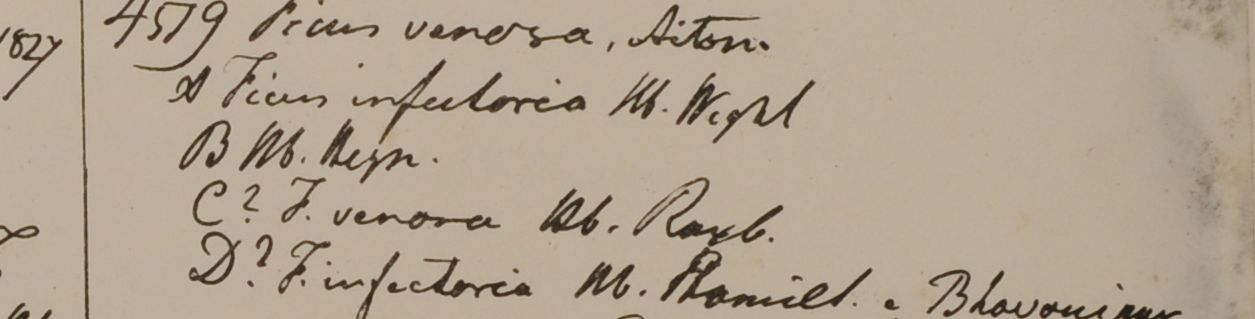 1827
4579 Ficus venosa, Aiton.
A Ficus infectoria Hb. Wight
B Hb. Heyn.
C? F. venosa Hb. Roxb.
D? F. infectoria Hb. Hamilt. e